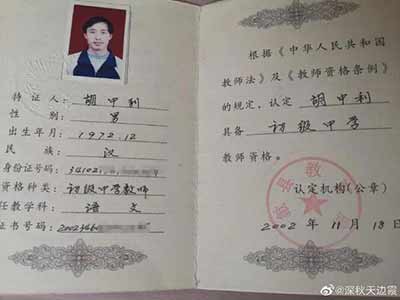 持证人：胡中利
性别：男
出生年月：1972.12
民族：汉
身份证号码：34102
资格种类：初级中学教师
任教学科：语文
证书号码：2002346
根据《中华人民共和国
教师法》及《教师资格条例》
的规定，认定 胡中利
具备 初级中学
教师资格。
教
县
认定机构（公章）
2002年11月18日
@深秋天边霞